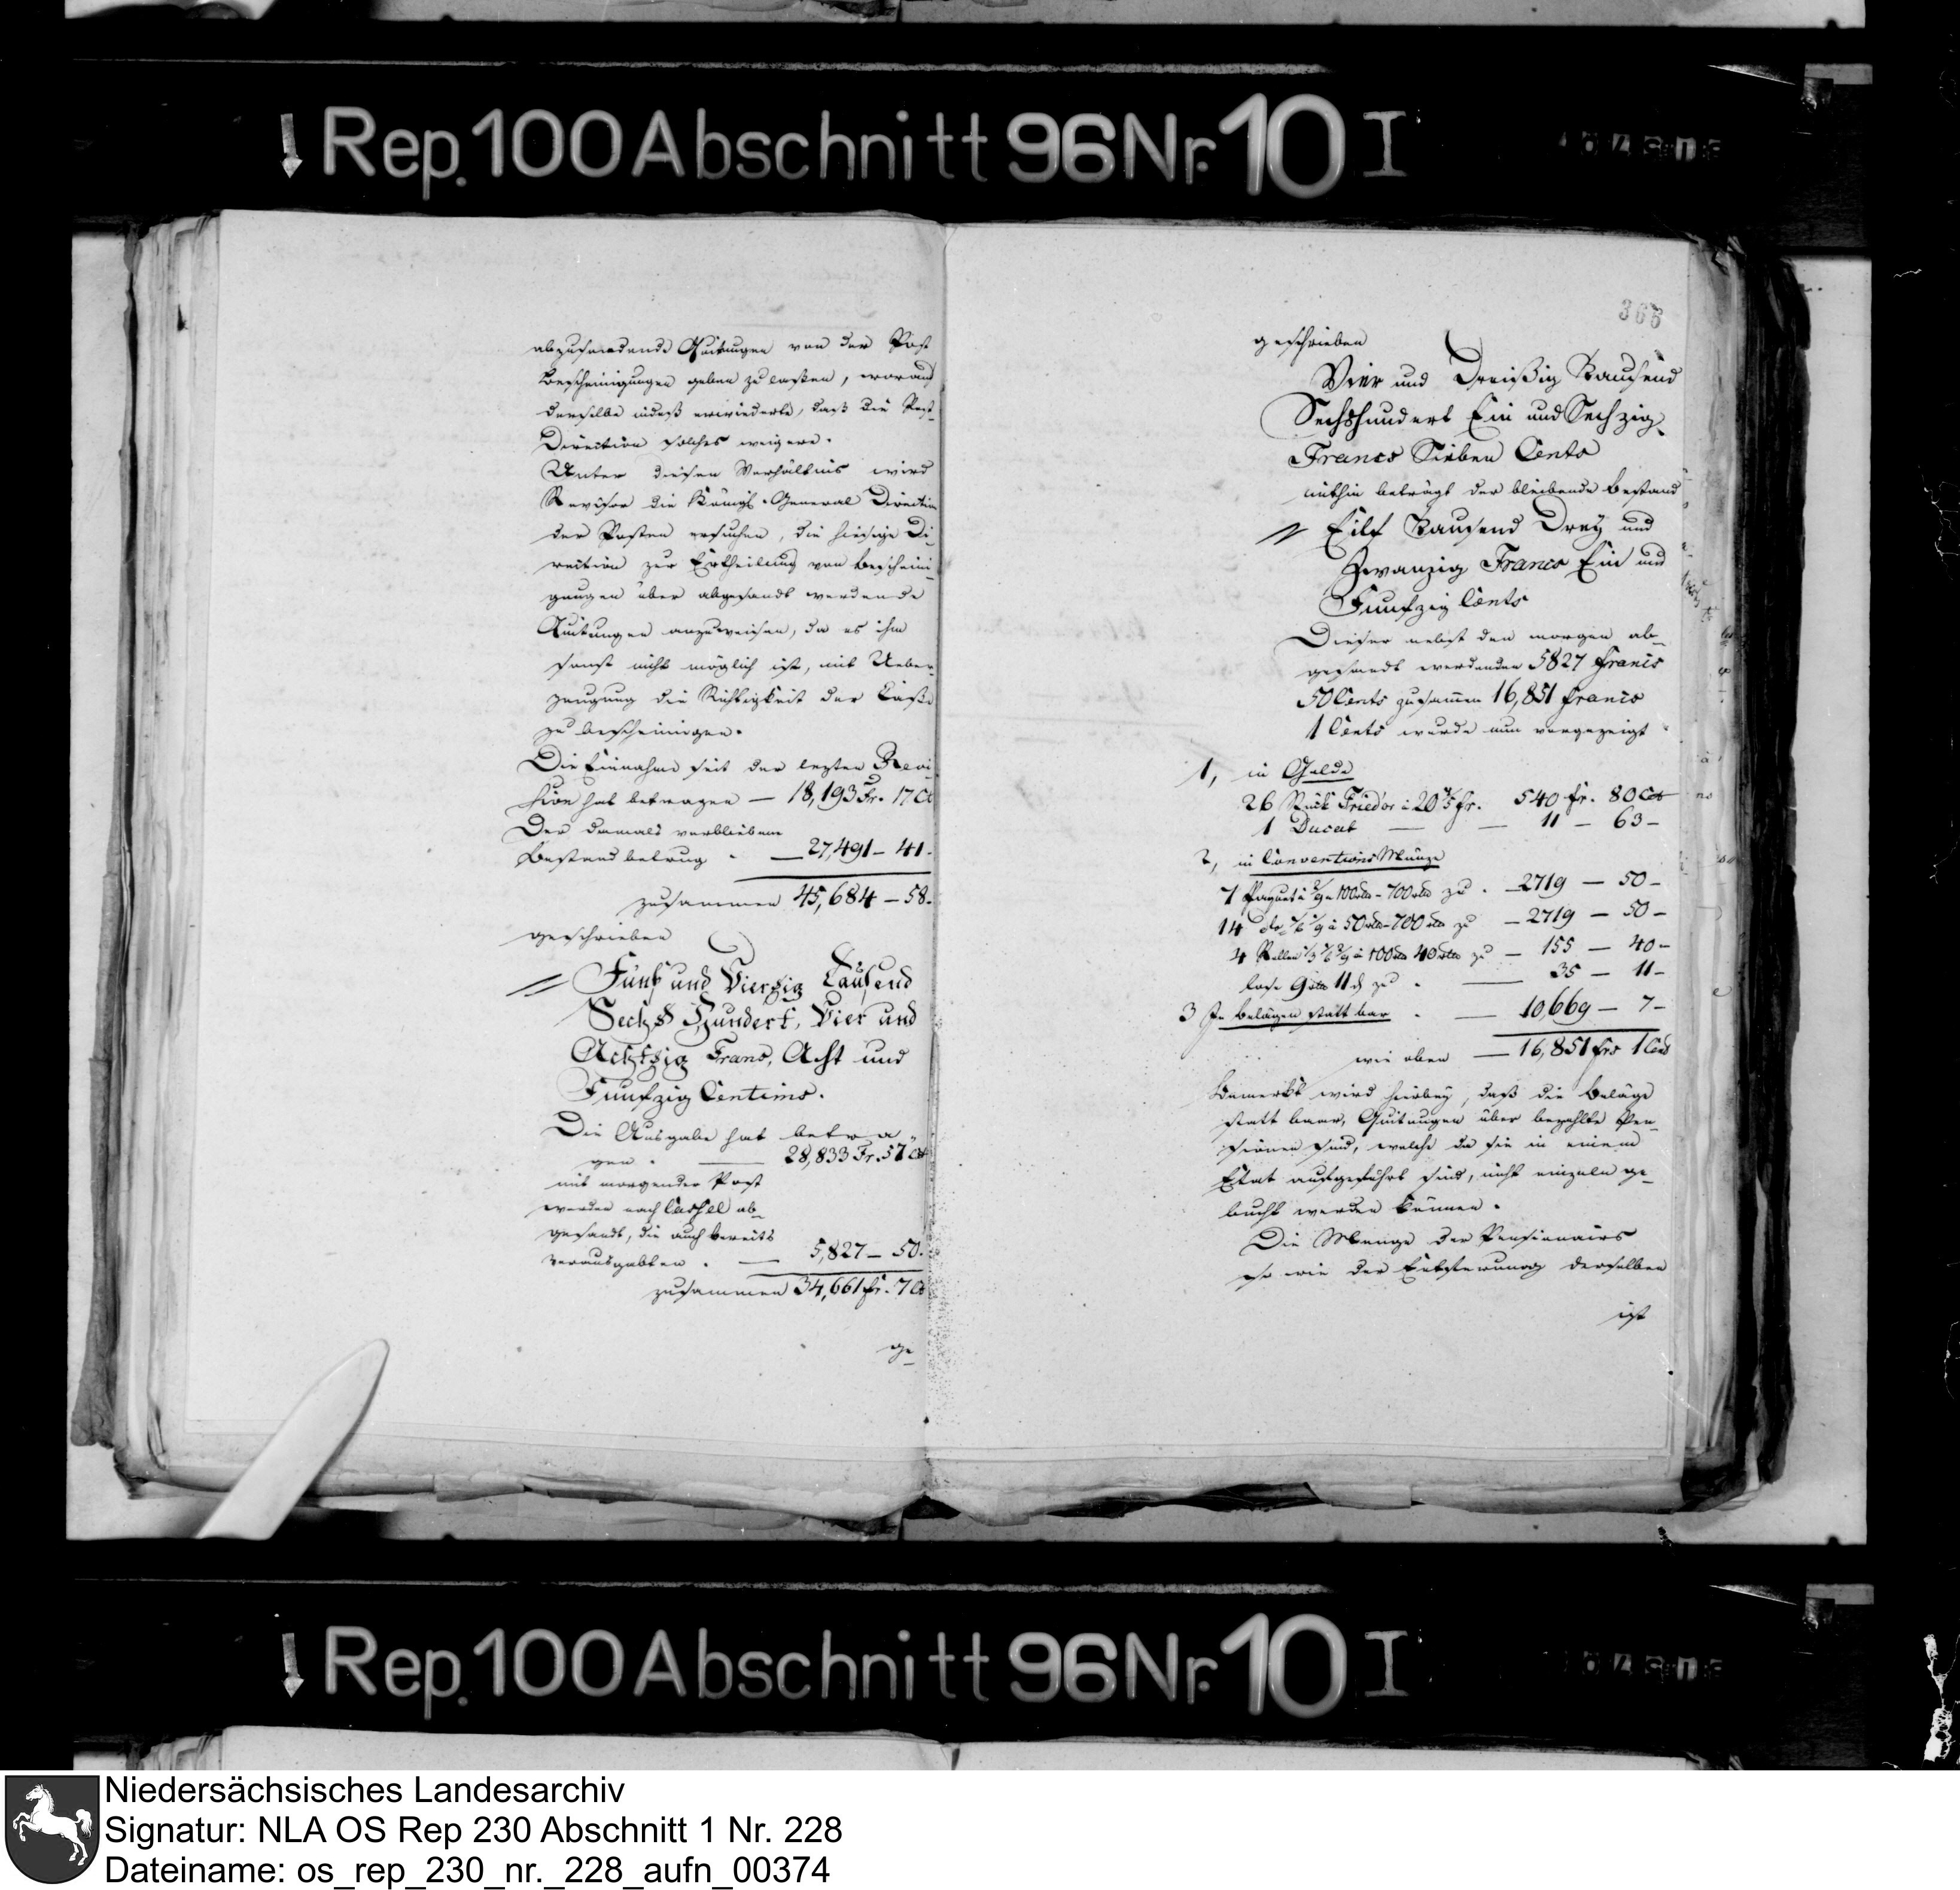 Rep. 100 Abschnitt 96 Nr. 10 I
abzusendende Quitungen von der Post
Bescheinigungen geben zu laßen, worauf
derselbe indeß erwiederte, daß die Post-
Direction solches weigere.
Unter diesen Verhältnis wird
Revisor die Königl. General Direction
der Posten ersuchen, die hiesige Di-
rection zur Ertheilung von Bescheini-
gungen über abgesandt werdende
Quitungen anzuweisen, da es ihm
sonst nicht möglich ist, mit Ueber-
zeugung die Richtigkeit der Casse
zu bescheinigen.
Die Einnahme seit der lezten Revi-
sion hat betragen — 18,193 Fr. 17 Ct
Der damals verbliebene
Bestand betrug . — 27,491 — 41.
zusammen 45,684 — 58.
geschrieben
Fünf und Vierzig Tausend
Sechs Hundert, Vier und
Achtzig Frans, Acht und
Funfzig Centims.
Die Ausgabe hat betra-
gen . — 28,833 Fr. 57 Ct
mit morgender Post
werden nach Cassel ab-
gesandt, die auch bereits
verausgabten . — 5,827 — 50.
zusammen 34,661 fr. 7 Ct
ge-
366
geschrieben
Vier und Dreißig Tausend
Sechshundert Ein und Sechzig
Francs Sieben Cents
mithin beträgt der bleibende Bestand
Eilf Tausend Drey und
Zwanzig Francs Ein und
Funfzig Cents
Dieser nebst den morgen ab-
gesandt werdenden 5827 francs
50 Cents zusammen 16,851 francs
1 Cents wurde nun vorgezeigt
1, in Golde
26 Stück Fried'or à 20 4/5 fr. 540 fr. 80 Cts
1 Ducat — — 11 — 63 —
2, in Conventions Münze
7 Paquet à 100 — 700 zu . — 2719 — 50 —
14 do à 50 — 700 zu — 2719 — 50 —
4 Rollen à 10 40 zu — 155 — 40 —
lose 9 11 zu . — 35 — 11 —
3 In Belägen statt bar . — 10669 — 7 —
wie oben — 16,851 frs 1 Cent
Bemerkt wird hierbey, daß die Beläge
statt baar, Quitungen über bezahlte Pen-
sionen sind, welche da sie in einem
Etat aufgeführt sind, nicht einzeln ge-
bucht werden können.
Die Menge der Pensionairs
so wie die Entfernung derselben
ist
Rep. 100 Abschnitt 96 Nr. 10 I
Niedersächsisches Landesarchiv
Signatur: NLA OS Rep 230 Abschnitt 1 Nr. 228
Dateiname: os_rep_230_nr._228_aufn_00374